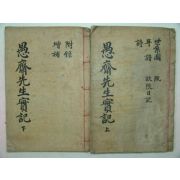 世系圖
年譜 日記
詩
愚齋先生實記 上
附錄
增補
愚齋先生實記 下